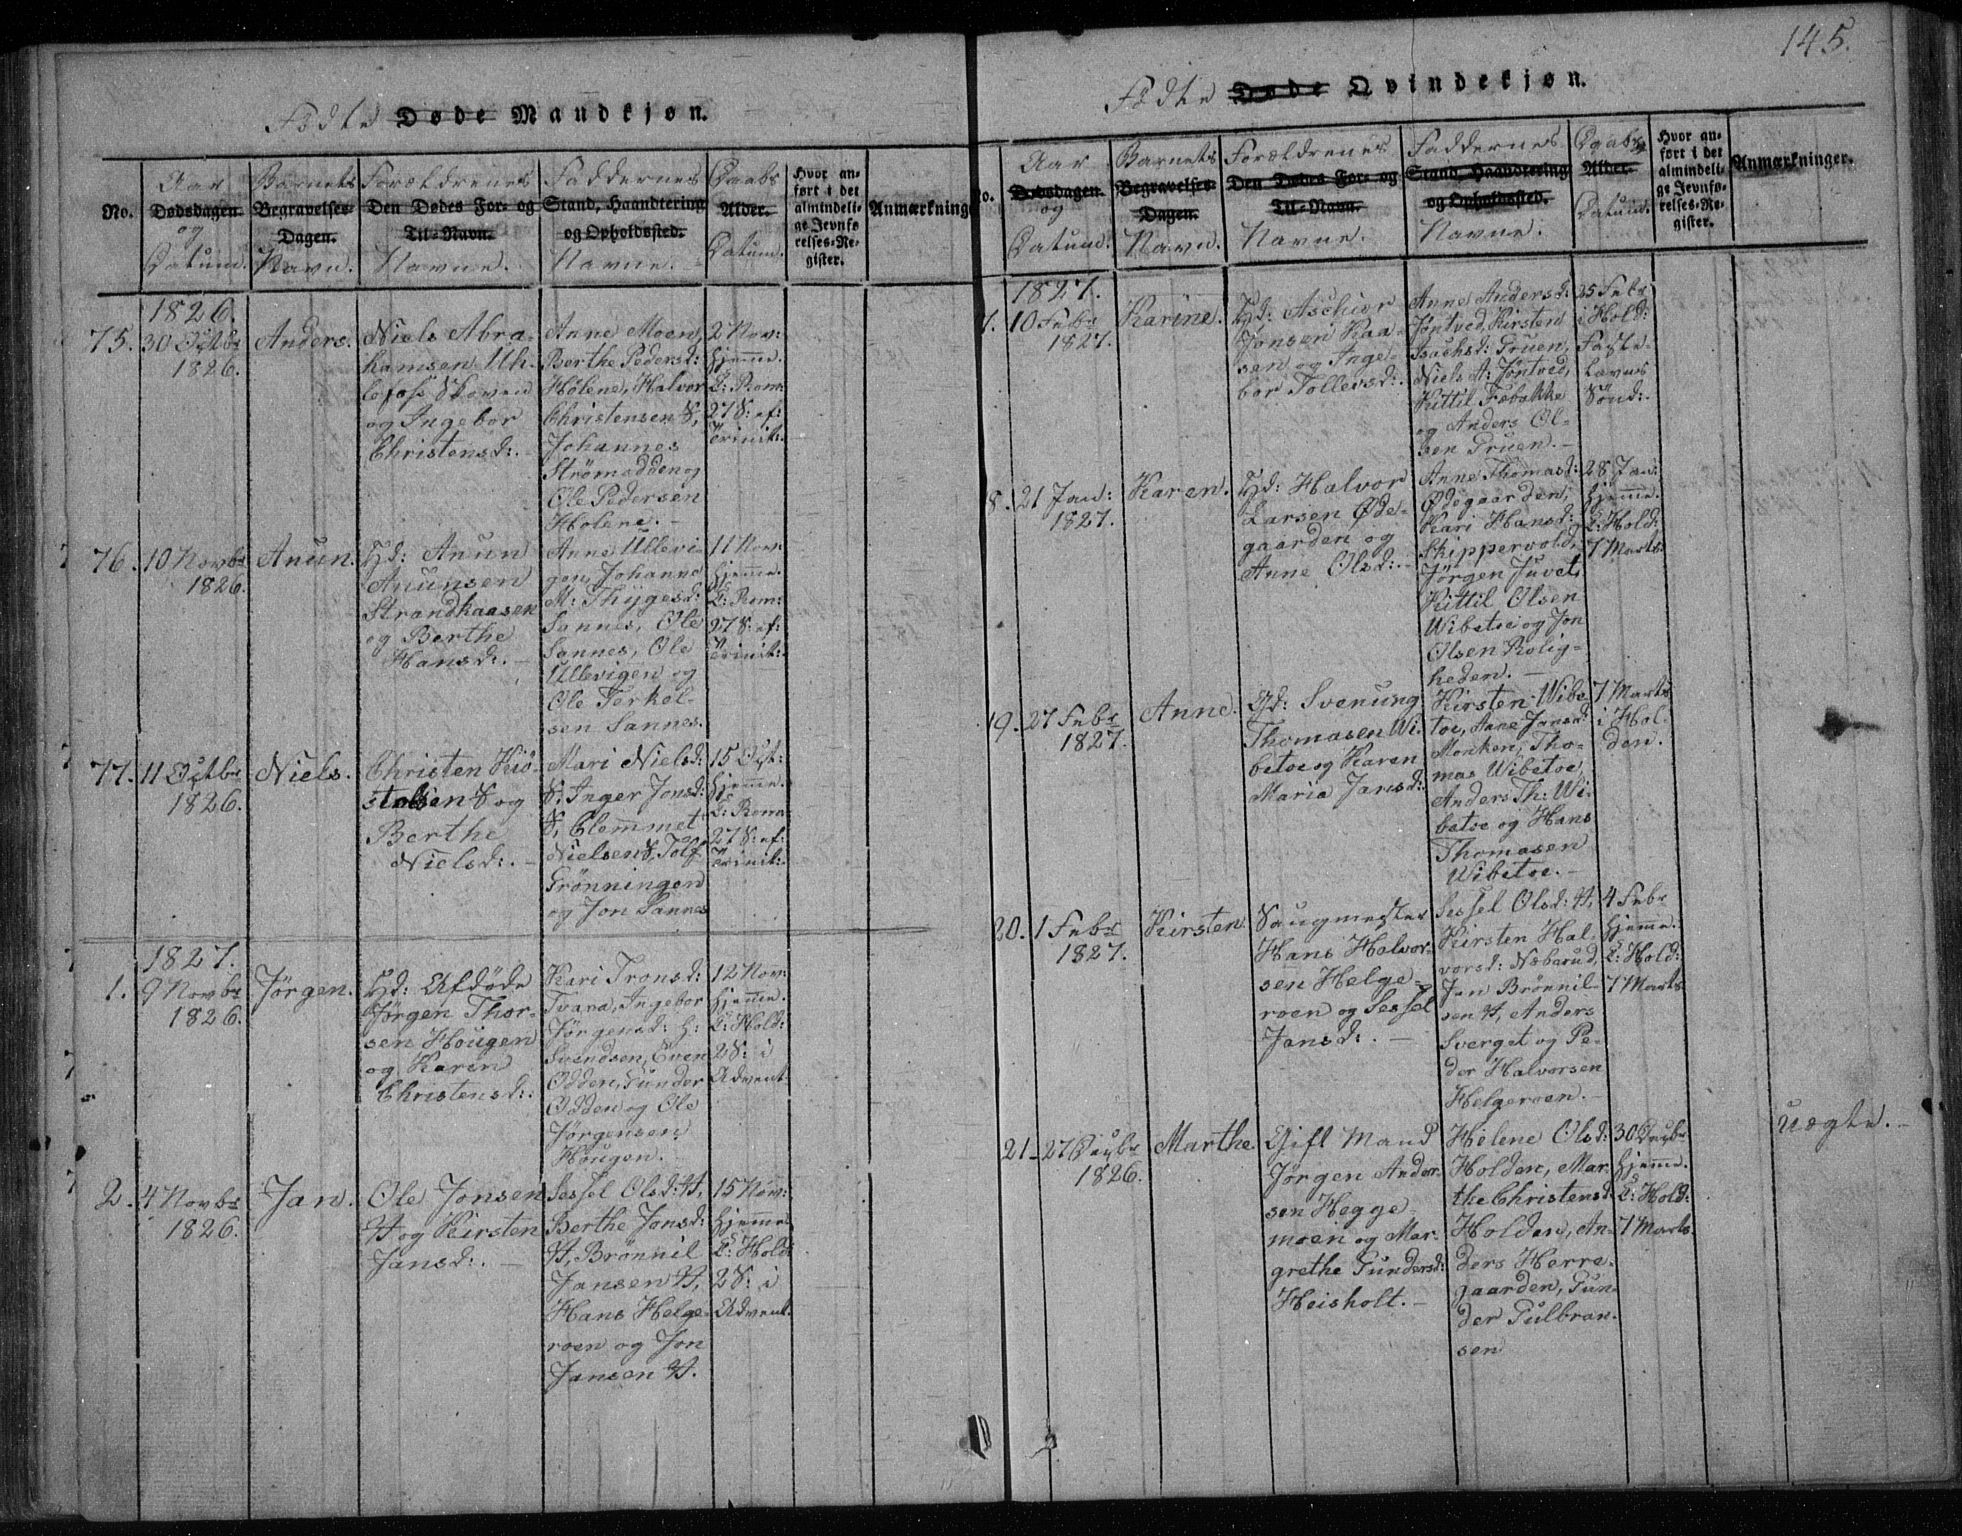 145.
Fødte Døde Mandkjøn.
No.
Aar
Dødsdagen.
og
Datum.
Barnets
Begravelses-
Dagen.
Navn.
Forældrenes
Den Dødes For- og
Til-Navn.
Navne.
Faddernes
Stand, Haandtering
og Opholdssted.
Navne.
Daabs
Alder.
Datum.
Hvor an-
ført i det
almindeli-
ge Jevnfø
relses-Re-
gister.
Anmærkning
1826.
75. 30 Octbr
1826.
Anders.
Niels Abra-
hamsen Uh-
lefoss Skoven
og Ingebor
Christensd:.
Anne Moen,
Berthe Pedersd:
Holene, Halvor
Christensen S,
Johannes
Strømodden og
Ole Pedersen
Holene.
2 Nov:
hjemme.
C: Rom:
27 S: ef:
Trinit:.
76. 10 Novbr
1826.
Anun.
Hd: Anun
Anunsen
Strandkaasen
og Berthe
Hansd:.
Anne Ullevi-
gen, Johanne
M: Thygesd:
Sannes, Ole
Sannes, Ole
Ullevigen og
Ole Terkel-
sen Sannes.
11 Nov:
hjemme.
C: Rom:
27 S: ef:
Trinit:.
77. 11 Octbr
1826.
Niels.
Christen Kiø-
stolsen S og
Berthe
Nielsd:.
Mari Nielsd:
S, Inger Jonsd:
S, Clemmet
Nielsen S, Tolf
Grønningen
og Jon Sannes
15 Oct:
hjemme.
C: Rom:
27 S: ef:
Trinit:.
1827.
1. 9 Novbr
1826.
Jørgen.
Hd: Afdøde
Jørgen Thor-
sen Hougen
og Karen
Christensd:.
Kari Tronsd:
Tvara, Ingebor
Jørgensd: H:
Svendsen, Even
Odden, Gunder
Odden og Ole
Jørgensen
Hougen.
12 Nov:
hjemme.
C: Hold:
2 S: i
Advent
2. 4 Novbr
1826.
Jan.
Ole Jonsen
H og Kirsten
Jansd:.
Sessel Olsd: H,
Berthe Jonsd:
H, Brønnil
Jansen H,
Hans Helge-
roen og Jon
Jansen H.
15 Nov:
hjemme
C: Hold:
2 S: i
Advent.
Fødte Døde Qvindekjøn.
o.
Aar
Dødsdagen.
og
Datum.
Barnets
Begravelses-
Dagen.
Navn.
Forældrenes
Den Dødes For- og
Til-Navn.
Navne.
Faddernes
Stand, Haandtering
og Opholdssted.
Navne.
Daabs
Alder.
Datum.
Hvor an-
ført i det
almindeli-
ge Jevnfø-
relses-Re-
gister.
Anmærkninger.
1827.
7. 10 Febr
1827.
Karine.
Hd: Aschier
Jonsen Kaa-
sen og Inge-
bor Tollevsd:.
Anne Andersd:
Jøntved, Kirsten
Isachsd: Gruen,
Niels A: Jøntved,
Kittil Fæbakke
og Anders Ol-
sen Gruen.
25 Febr
i Hold:
Faste-
lavns
Sønd:.
8. 21 Jan:
1827.
Karen.
Hd: Halvor
Larsen Øde-
gaarden og
Anne Olsd:.
Anne Thomasd:
Ødegaarden,
Kari Hansd:
Skippervold,
Jørgen Juvet,
Kittil Olsen
Wibetoe og Jon
Olsen Rolig-
heden.
28 Jan:
hjemme.
C: Hold:
7 Marts
19. 27 Febr
1827.
Anne.
Gd: Svenung
Thomasen Wi-
betoe og Karen
Maria Jansd:
Kirsten Wibe-
toe, Anne Jansd:
Monken, Tho-
mas Wibetoe,
Anders Th: Wi-
betoe og Hans
Thomasen
Wibetoe.
7 Marts
i Hol-
den.
20. 1 Febr
1827.
Kirsten
Saugmester
Hans Halvor-
sen Helge-
roen og Sessel
Jansd:.
Sessel Olsd: H,
Kirsten Hal-
vorsd: Næbarud,
Jan Brønnil-
sen H, Anders
Sverget og Pe-
der Halvorsen
Helgeroen.
4 Febr
hjemme.
C: Hold:
7 Marts
21. 27 Decbr
1826.
Marthe
Gift Mand
Jørgen Ander-
sen Hegge-
moen og Mar-
grethe Gundersd:
Heisholt.
Helene Olsd:
Holden, Mar-
the Christensd:
Holden, An-
ders Herre-
gaarden, Gun-
der Gulbran-
sen
30 Decbr
hjemme.
C: Hold:
7 Marts.
uægte.